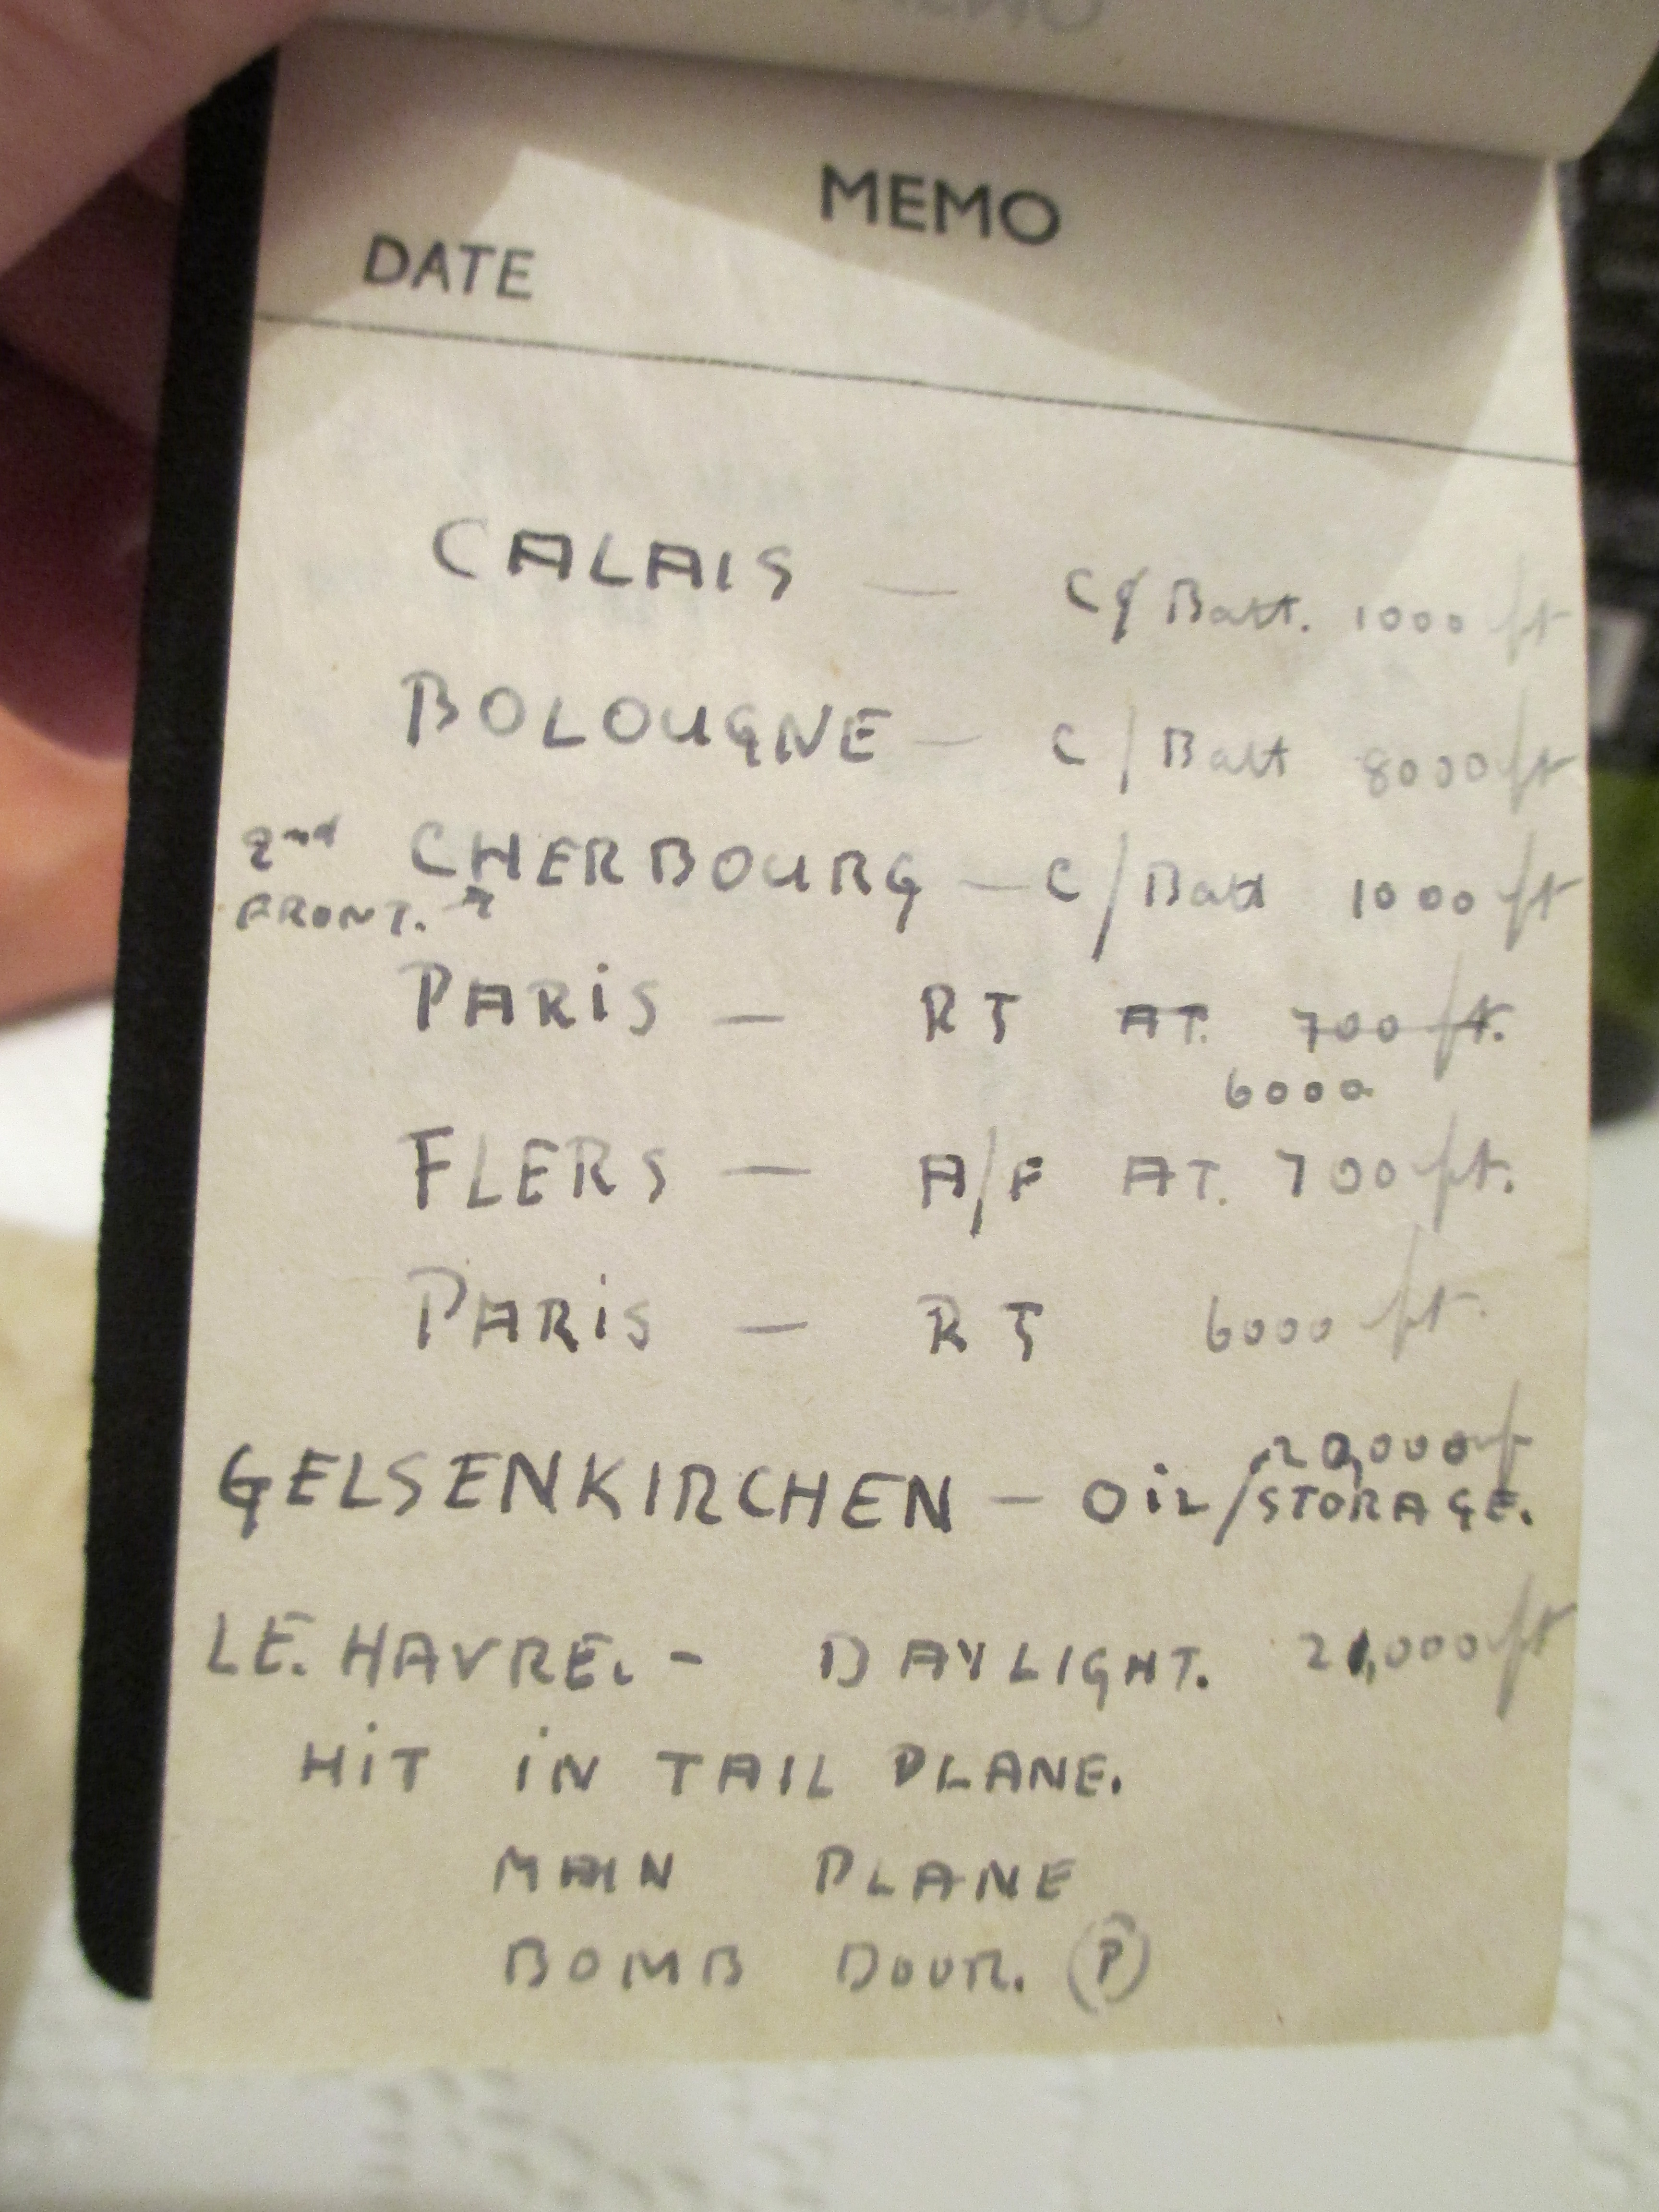 MEMO
DATE
CALAIS — C/Batt. 1000 ft
BOLOUGNE — C/Batt 8000 ft
2nd FRONT. CHERBOURG — C/Batt 1000 ft
PARIS — RT AT. 700 ft.
6000
FLERS — A/F AT. 700 ft.
PARIS — RT 6000 ft.
20,000 ft
GELSENKIRCHEN — OIL/STORAGE.
LE. HAVRE. - DAYLIGHT. 21,000 ft
HIT IN TAIL PLANE.
MAIN PLANE
BOMB DOOR. (P)